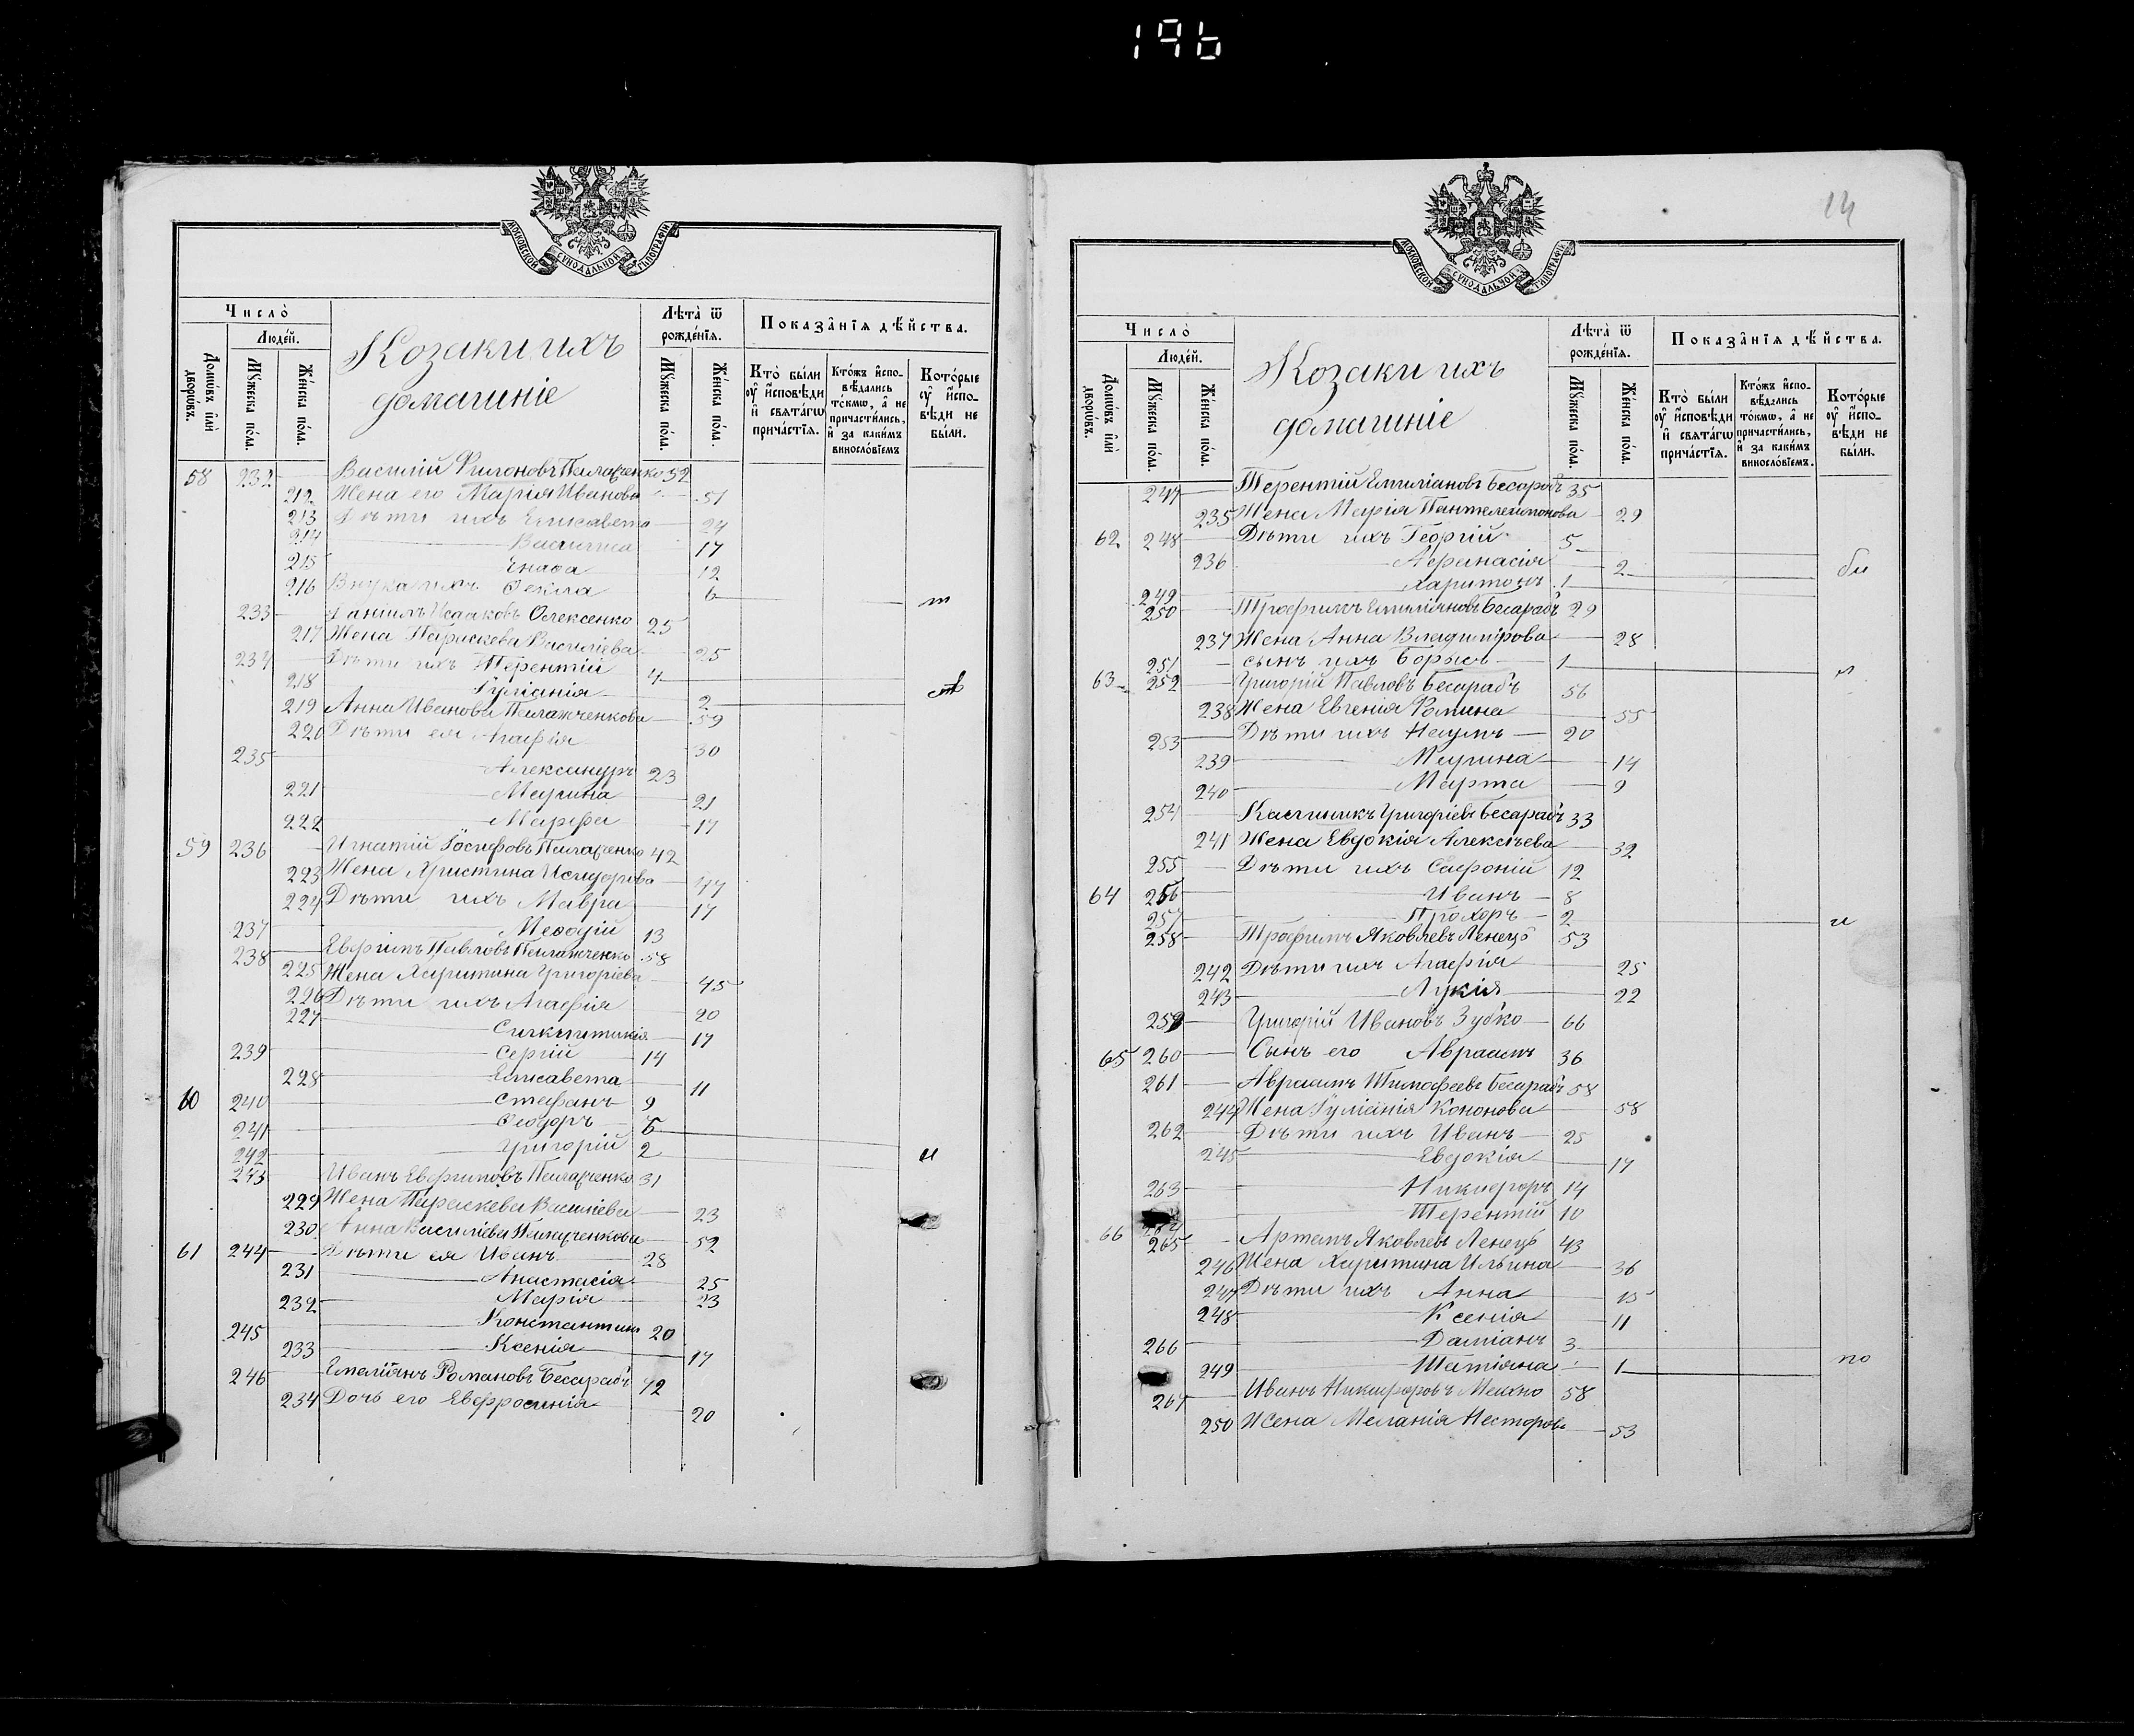 196
МОСКОВСКОЙ СУНОДАЛЬНОЙ ТИПОГРАФІИ
Число̀
Люде́й.
Домѡ́въ и҆лѝ дворѡ́въ.
Мꙋ́жеска по́ла.
Же́нска по́ла.
Козаки ихъ
домашніе
Лѣта̀ ѿ рожде́нїѧ.
Мꙋ́жеска по́ла.
Же́нска по́ла.
Показа̑нїѧ дѣ́йства.
Кто̀ бы́ли оу҆ и҆сповѣ́ди и҆ свѧта́гѡ прича́стїѧ.
Кто́жъ и҆спо-вѣ́дались то́кмѡ, а҆ не причасти́лись, и҆ за каки́мъ винословїемъ
Кото́рые оу҆ и҆спо-вѣ́ди не бы́ли.
58 232 Василій 52
212 Жена его Марія Иванова 51
213 Дѣти ихъ Елисавета 24
214 Василиса 17
215 12
216 Внука ихъ Ѳекла 6 т
233 Даніилъ Исааковъ Олексенко 25
217 Жена Параскева Василіева 25
234 Дѣти ихъ Терентій 4
218 Іуліанія 2
219 Анна Иванова Пилипченкова 59
220 Дѣти ея Агафія 30
235 Александръ 23
221 Марина 21
222 Марфа 17
59 236 Игнатій Іосифовъ 42
223 Жена Христина Исидорова 47
224 Дѣти ихъ Мавра 17
237 Меѳодій 13
238 Евфимъ Павловъ 58
225 Жена Харитина Григоріева 45
226 Дѣти ихъ Агафія 20
227 Синклитикія 17
239 Сергій 14
228 Елисавета 11
60 240 Стефанъ 9
241 Ѳеодоръ 5
242 Григорій 2 и
243 Иванъ Евфимовъ 31
229 Жена Параскева Василіева 23
230 Анна Василіева 52
61 244 Дѣти ея Иванъ 28
231 Анастасія 25
232 Марія 23
245 Константинъ 20
233 Ксенія 17
246 Емеліянъ Романовъ Бесарабъ 72
234 Дочь его Евфросинія 20
МОСКОВСКОЙ СУНОДАЛЬНОЙ ТИПОГРАФІИ
Число̀
Люде́й.
Домѡ́въ и҆лѝ дворѡ́въ.
Мꙋ́жеска по́ла.
Же́нска по́ла.
Козаки ихъ
домашніе
Лѣта̀ ѿ рожде́нїѧ.
Мꙋ́жеска по́ла.
Же́нска по́ла.
Показа̑нїѧ дѣ́йства.
Кто̀ бы́ли оу҆ и҆сповѣ́ди и҆ свѧта́гѡ прича́стїѧ.
Кто́жъ и҆спо-вѣ́дались то́кмѡ, а҆ не причасти́лись, и҆ за каки́мъ винословїемъ.
Кото́рые оу҆ и҆спо-вѣ́ди не бы́ли.
247 Терентій Емиліановъ Бесарабъ 35
235 Жена Марія Пантелеимонова 29
62 248 Дѣти ихъ Георгій 5
236 Афанасія 2 бы
249 Харитонъ 1
250 Трофимъ Емиліяновъ Бесарабъ 29
237 Жена Анна Владимірова 28
251 сынъ ихъ Борысъ 1 л
63 252 Григорій Павловъ Бесарабъ 56
238 Жена Евгенія Фомина 55
253 Дѣти ихъ Наумъ 20
239 Марина 14
240 Марта 9
254 Каллиникъ Григоріевъ Бесарабъ 33
241 Жена Евдокія Алексѣева 32
255 Дѣти ихъ Сафроній 12
64 256 Иванъ 8
257 Прохоръ 2 и
258 Трофимъ Яковлевъ Ленецъ 53
242 Дѣти ихъ Агафія 25
243 Лукія 22
259 Григорій Ивановъ Зубко 66
65 260 Сынъ его Авраамъ 36
261 Авраамъ Тимофеевъ Бесарабъ 58
244 Жена Іуліанія Кононова 58
262 Дѣти ихъ Иванъ 25
245 Евдокія 17
263 Никифоръ 14
264 Терентій 10
66 265 Артемъ Яковлевъ Ленецъ 43
246 Жена Харитина Ильина 36
247 Дѣти ихъ Анна 15
248 Ксенія 11
266 Даміанъ 3
249 Татіяна 1 по
267 Иванъ Никифоровъ Мехно 58
250 Жена Меланія Несторова 53